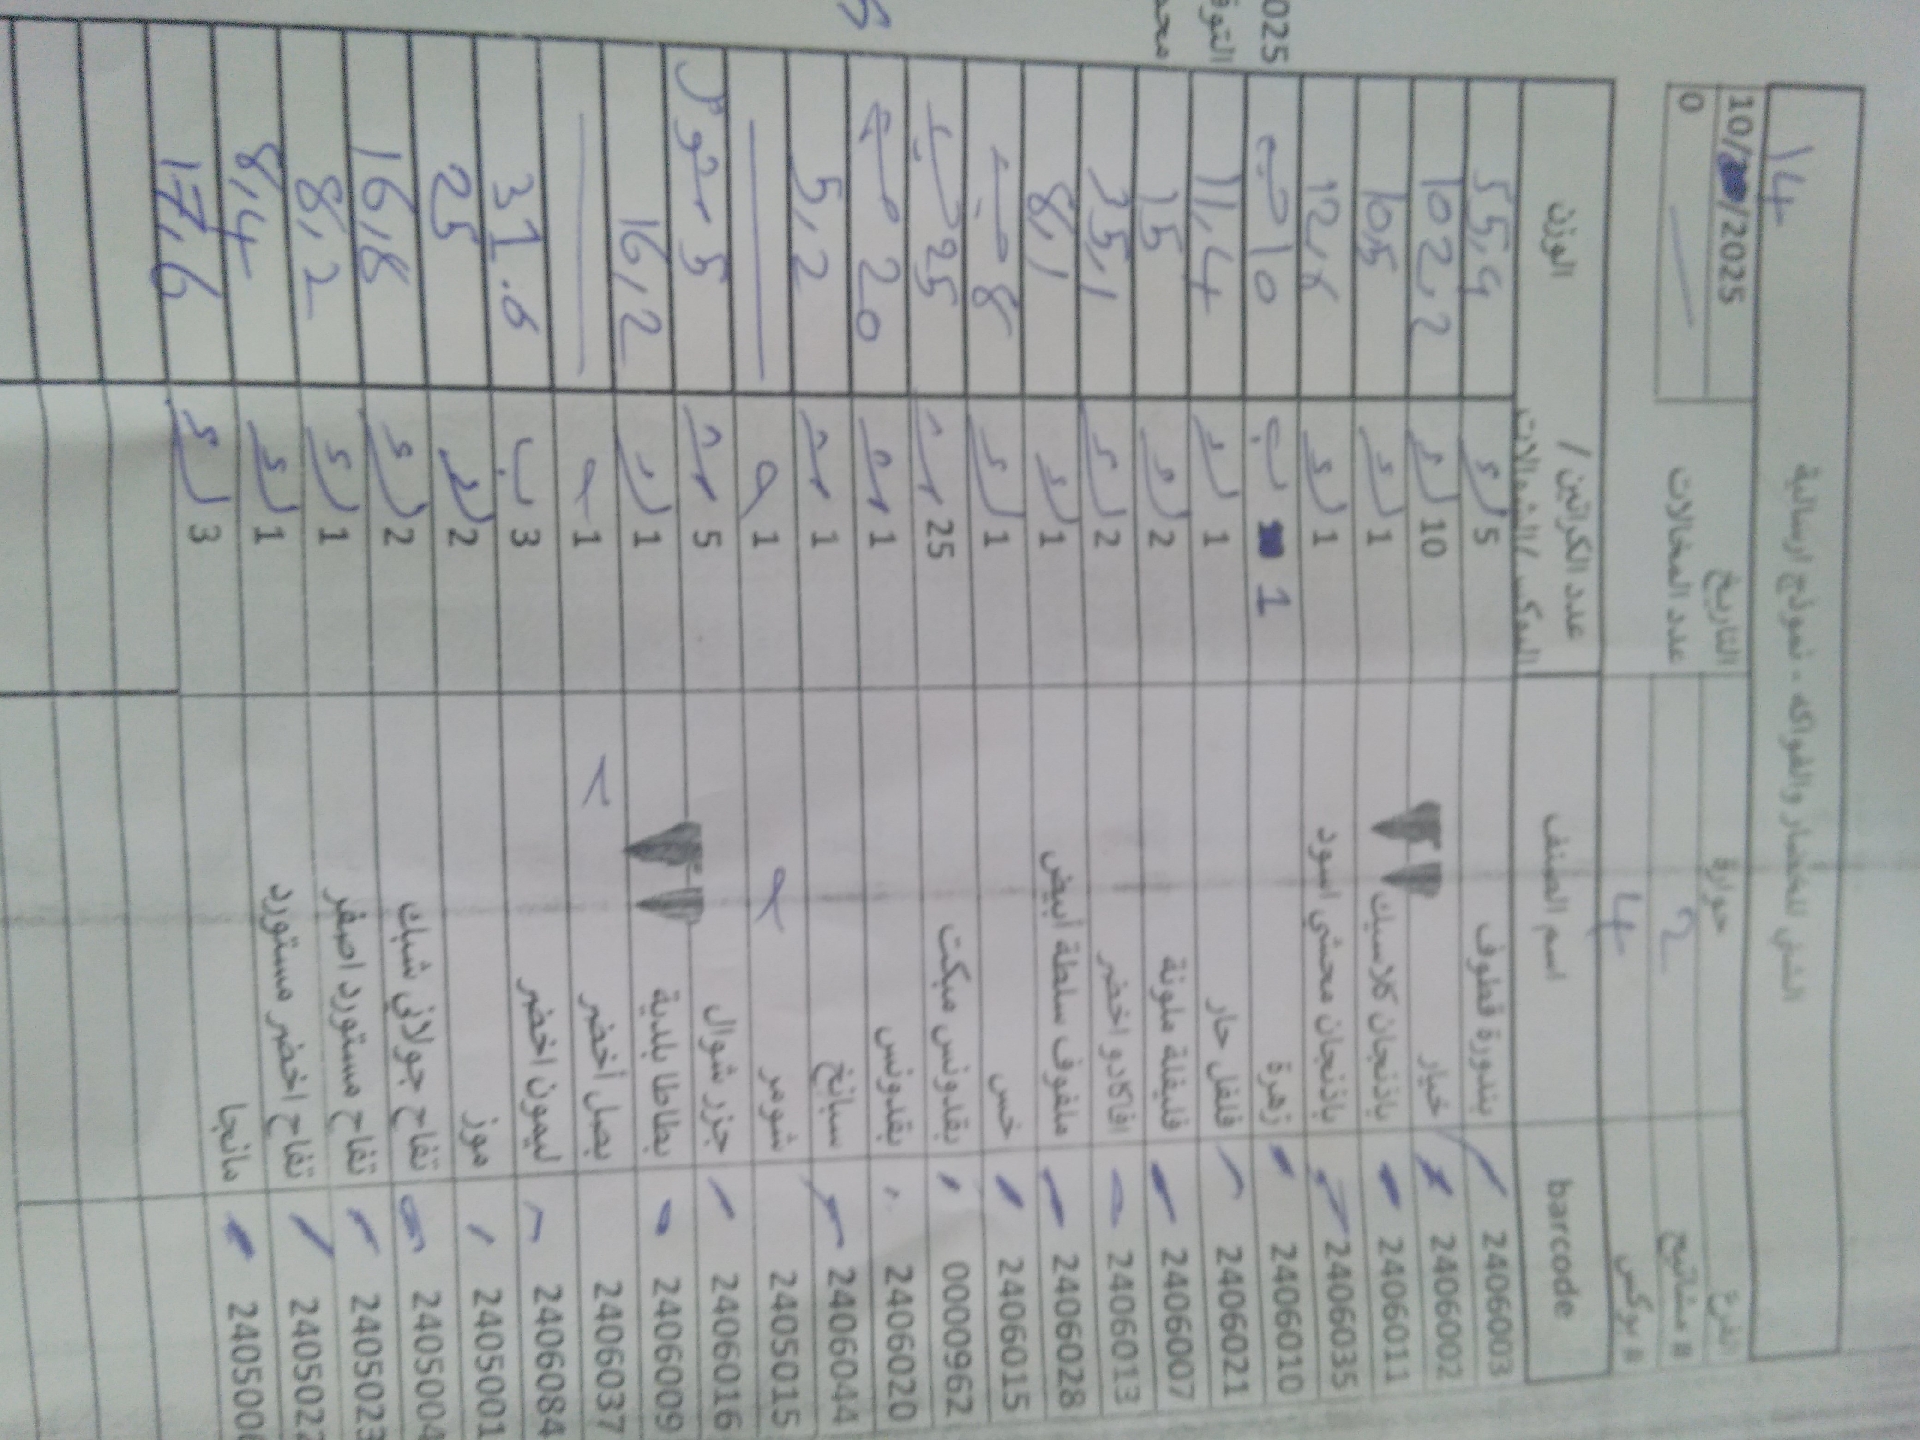 الشني للخضار والفواكه - نموذج ارسالية
14
الفرع حوارة التاريخ 10/ /2025
# مشاتيح 2 عدد المخالات 0
# بوكس 4
barcode اسم الصنف عدد الكراتين / البوكس / الشوالات الوزن
2406003 بندورة قطوف 5 55,4
2406002 خيار 10 102,2
2406011 باذنجان كلاسيك 1 10,5
2406035 باذنجان محشي اسود 1
2406010 زهرة 1 10
2406021 فلفل حار 1 11,4
2406007 فليفلة ملونة 2 15
2406013 افاكادو اخضر 2 35,1
2406028 ملفوف سلطة أبيض 1 8,1
2406015 خس 1 8
00009962 بقدونس مبكت 25 25
2406020 بقدونس 1 20
2406044 سبانخ 1 5,2
2405015 شومر 1
2406016 جزر شوال 5 5
2406009 بطاطا بلدية 1 16,2
2406037 بصل أخضر 1
2406084 ليمون اخضر 3 31.6
2405001 موز 2 25
2405004 تفاح جولاني شبك 2 16,8
2405023 تفاح مستورد اصفر 1 8,2
240502 تفاح اخضر مستورد 1 8,4
240500 مانجا 3 17,6
025